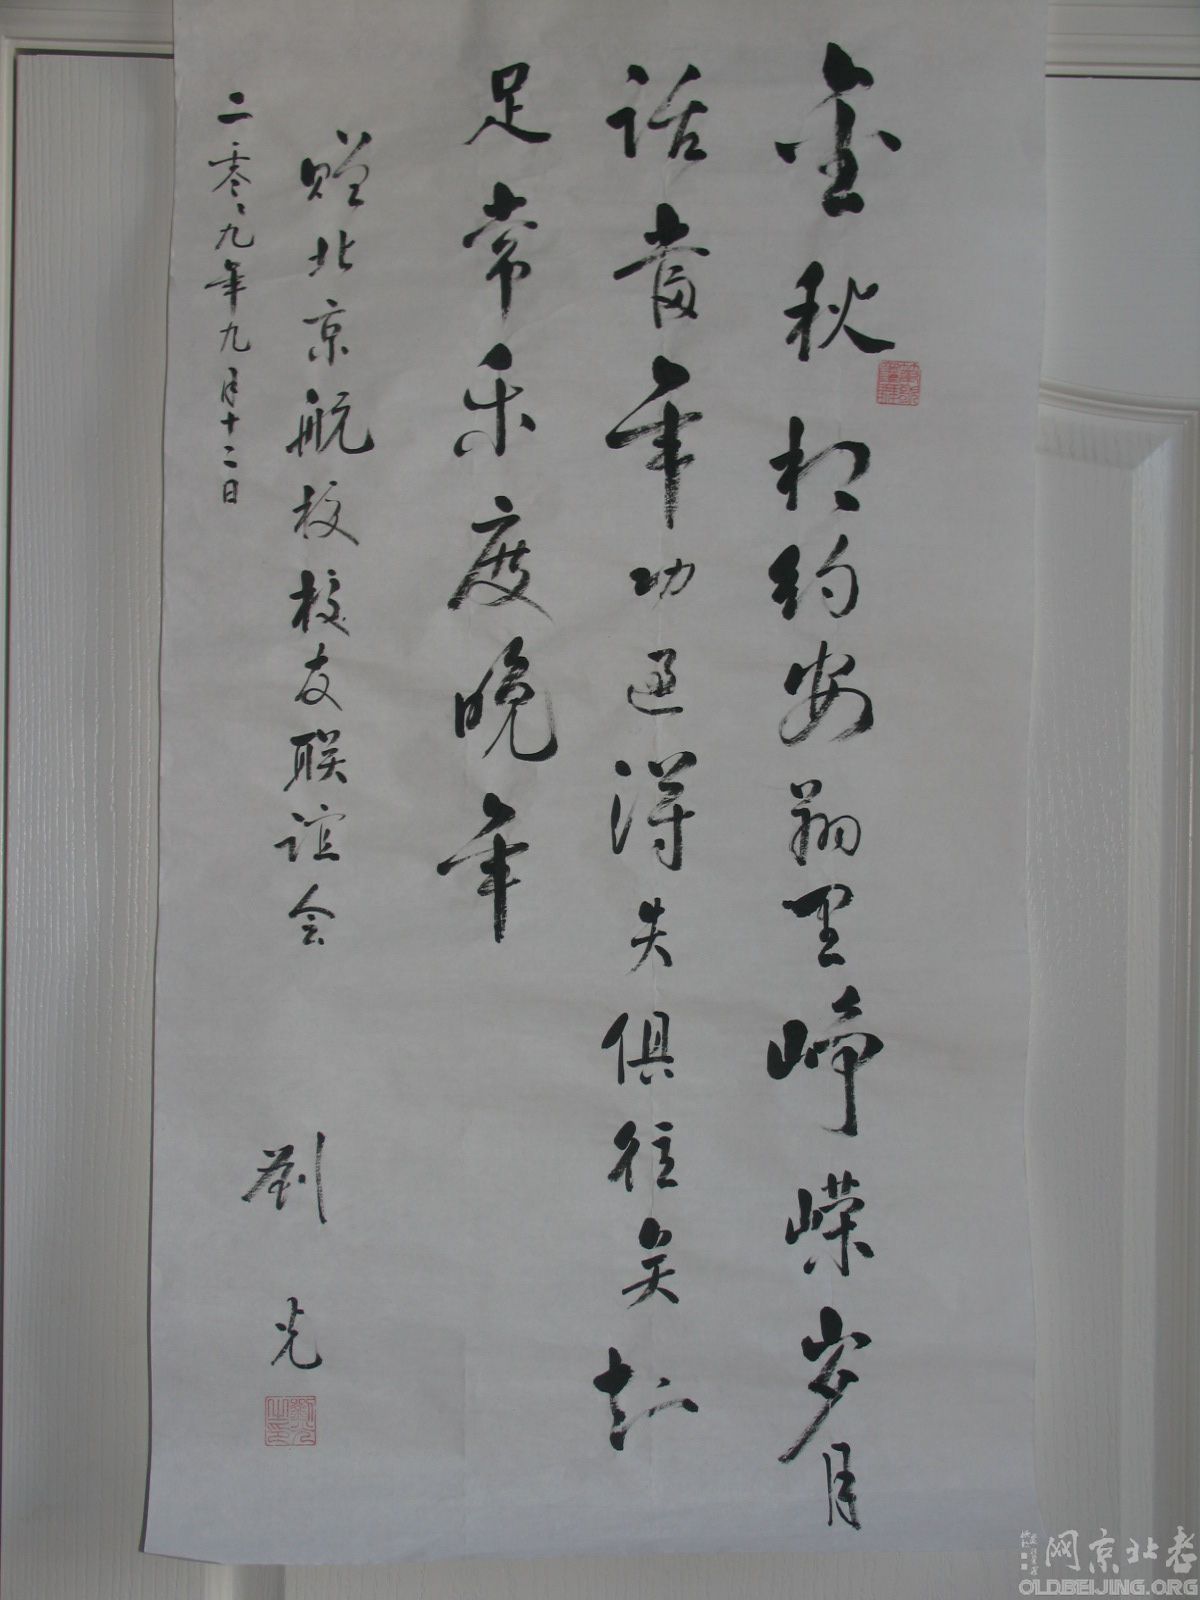 金秋相约安翔里峥嵘岁月
话當年功过得失俱往矣知
足常乐度晚年
赠北京航校校友联谊会 劉光
二零〻九年九月十二日
劉光之印
老北京网
OLDBEIJING.ORG